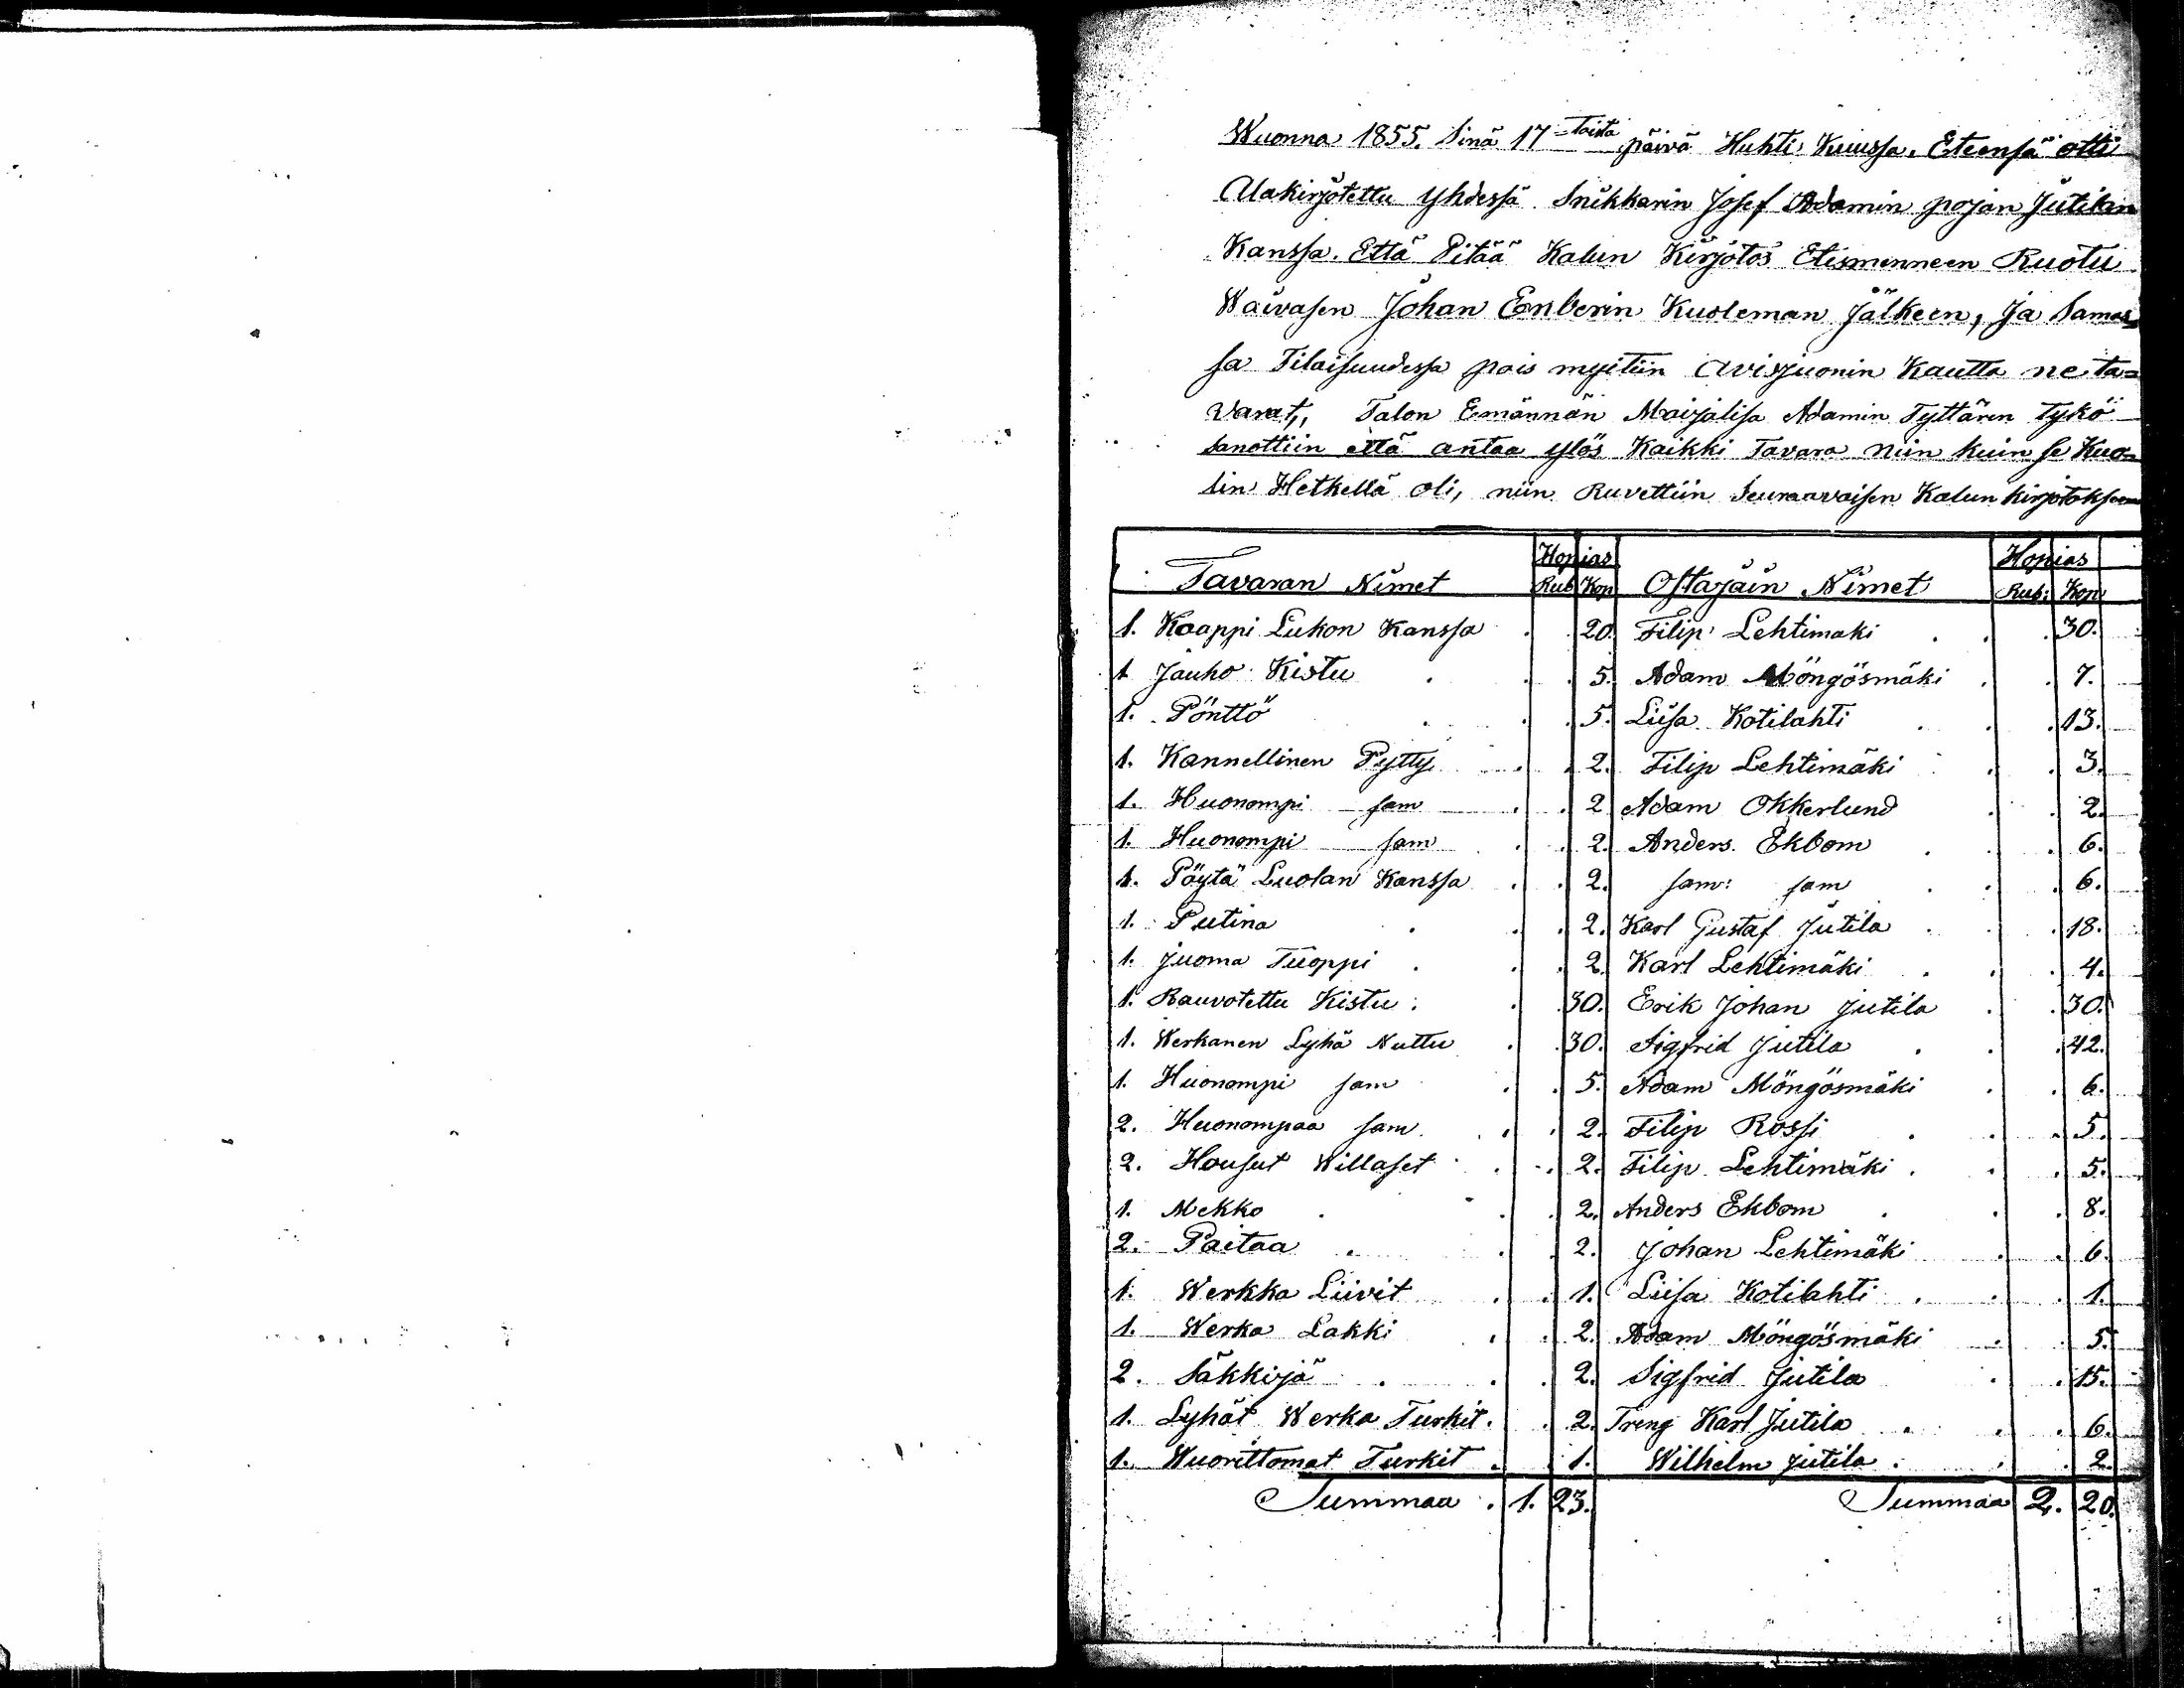 Wuonna 1855. Sinä 17-Toista päivä Huhti Kuussa. Eteensä otti
Alakirjotettu Yhdessä Snikkarin Josef Adamin pojan Jutilan
Kanssa. Että Pitää Kalun Kirjotos Etismenneen Ruotu
Waivasen Johan Enberin Kuoleman Jälkeen, Ja Samas=
sa Tilaisuudessa pois myitiin Avisjuonin Kautta ne ta=
varat,, Talon Emännän Maijalisa Adamin Tyttären Tykö
sanottiin että antaa ylös Kaikki Tavara niin kuin se Kuo=
lin Hetkellä oli, niin Ruvettiin Seuraavaisen Kalun kirjotoksen
Tavaran Nimet Hopias Rub Kop Ostajain Nimet Hopias Rub: Kop:
1. Kaappi Lukon Kanssa . . 20. Filip Lehtimaki . . . 30.
1 Jauho Kistu . . . 5. Adam Möngösmäki . . 7.
1. Pönttö . . . 5. Liisa Kotilahti . . . 13.
1. Kannellinen Pytty . . 2. Filip Lehtimäki . . 3.
1. Huonompi sam . . 2 Adam Okkerlund . . 2.
1. Huonompi sam . . 2. Anders Ekbom . . . 6.
1. Pöytä Luolan Kanssa . . 2. sam: sam . . . 6.
1. Putina . . . 2. Karl Gustaf Jutila . . . 18.
1. Juoma Tuoppi . . . 2. Karl Lehtimäki . . . 4.
1. Rauvotettu Kistu . . . 30. Erik Johan Jutila . . 30.
1. Werkanen Lyhä Nuttu . . 30. Sigfrid Jutila . . . 42.
1. Huonompi sam . . 5. Adam Möngösmäki . . 6.
2. Huonompaa sam . . 2. Filip Rossi . . . 5.
2. Housut Willaset . . 2. Filip Lehtimäki . . . 5.
1. Mekko . . . 2. Anders Ekbom . . . 8.
2. Paitaa . . . 2. Johan Lehtimäki . . 6.
1. Werkka Liivit . . 1. Liisa Kotilahti . . . 1.
1. Werka Lakki . . 2. Adam Möngösmäki . . 5.
2. Säkkijä . . . 2. Sigfrid Jutila . . 15.
1. Lyhät Werka Turkit . . 2. Treng Karl Jutila . . . 6.
1. Wuorittomat Turkit . . 1. Wilhelm Jutila . . . 2.
Summaa . 1. 23. Summaa 2. 20.